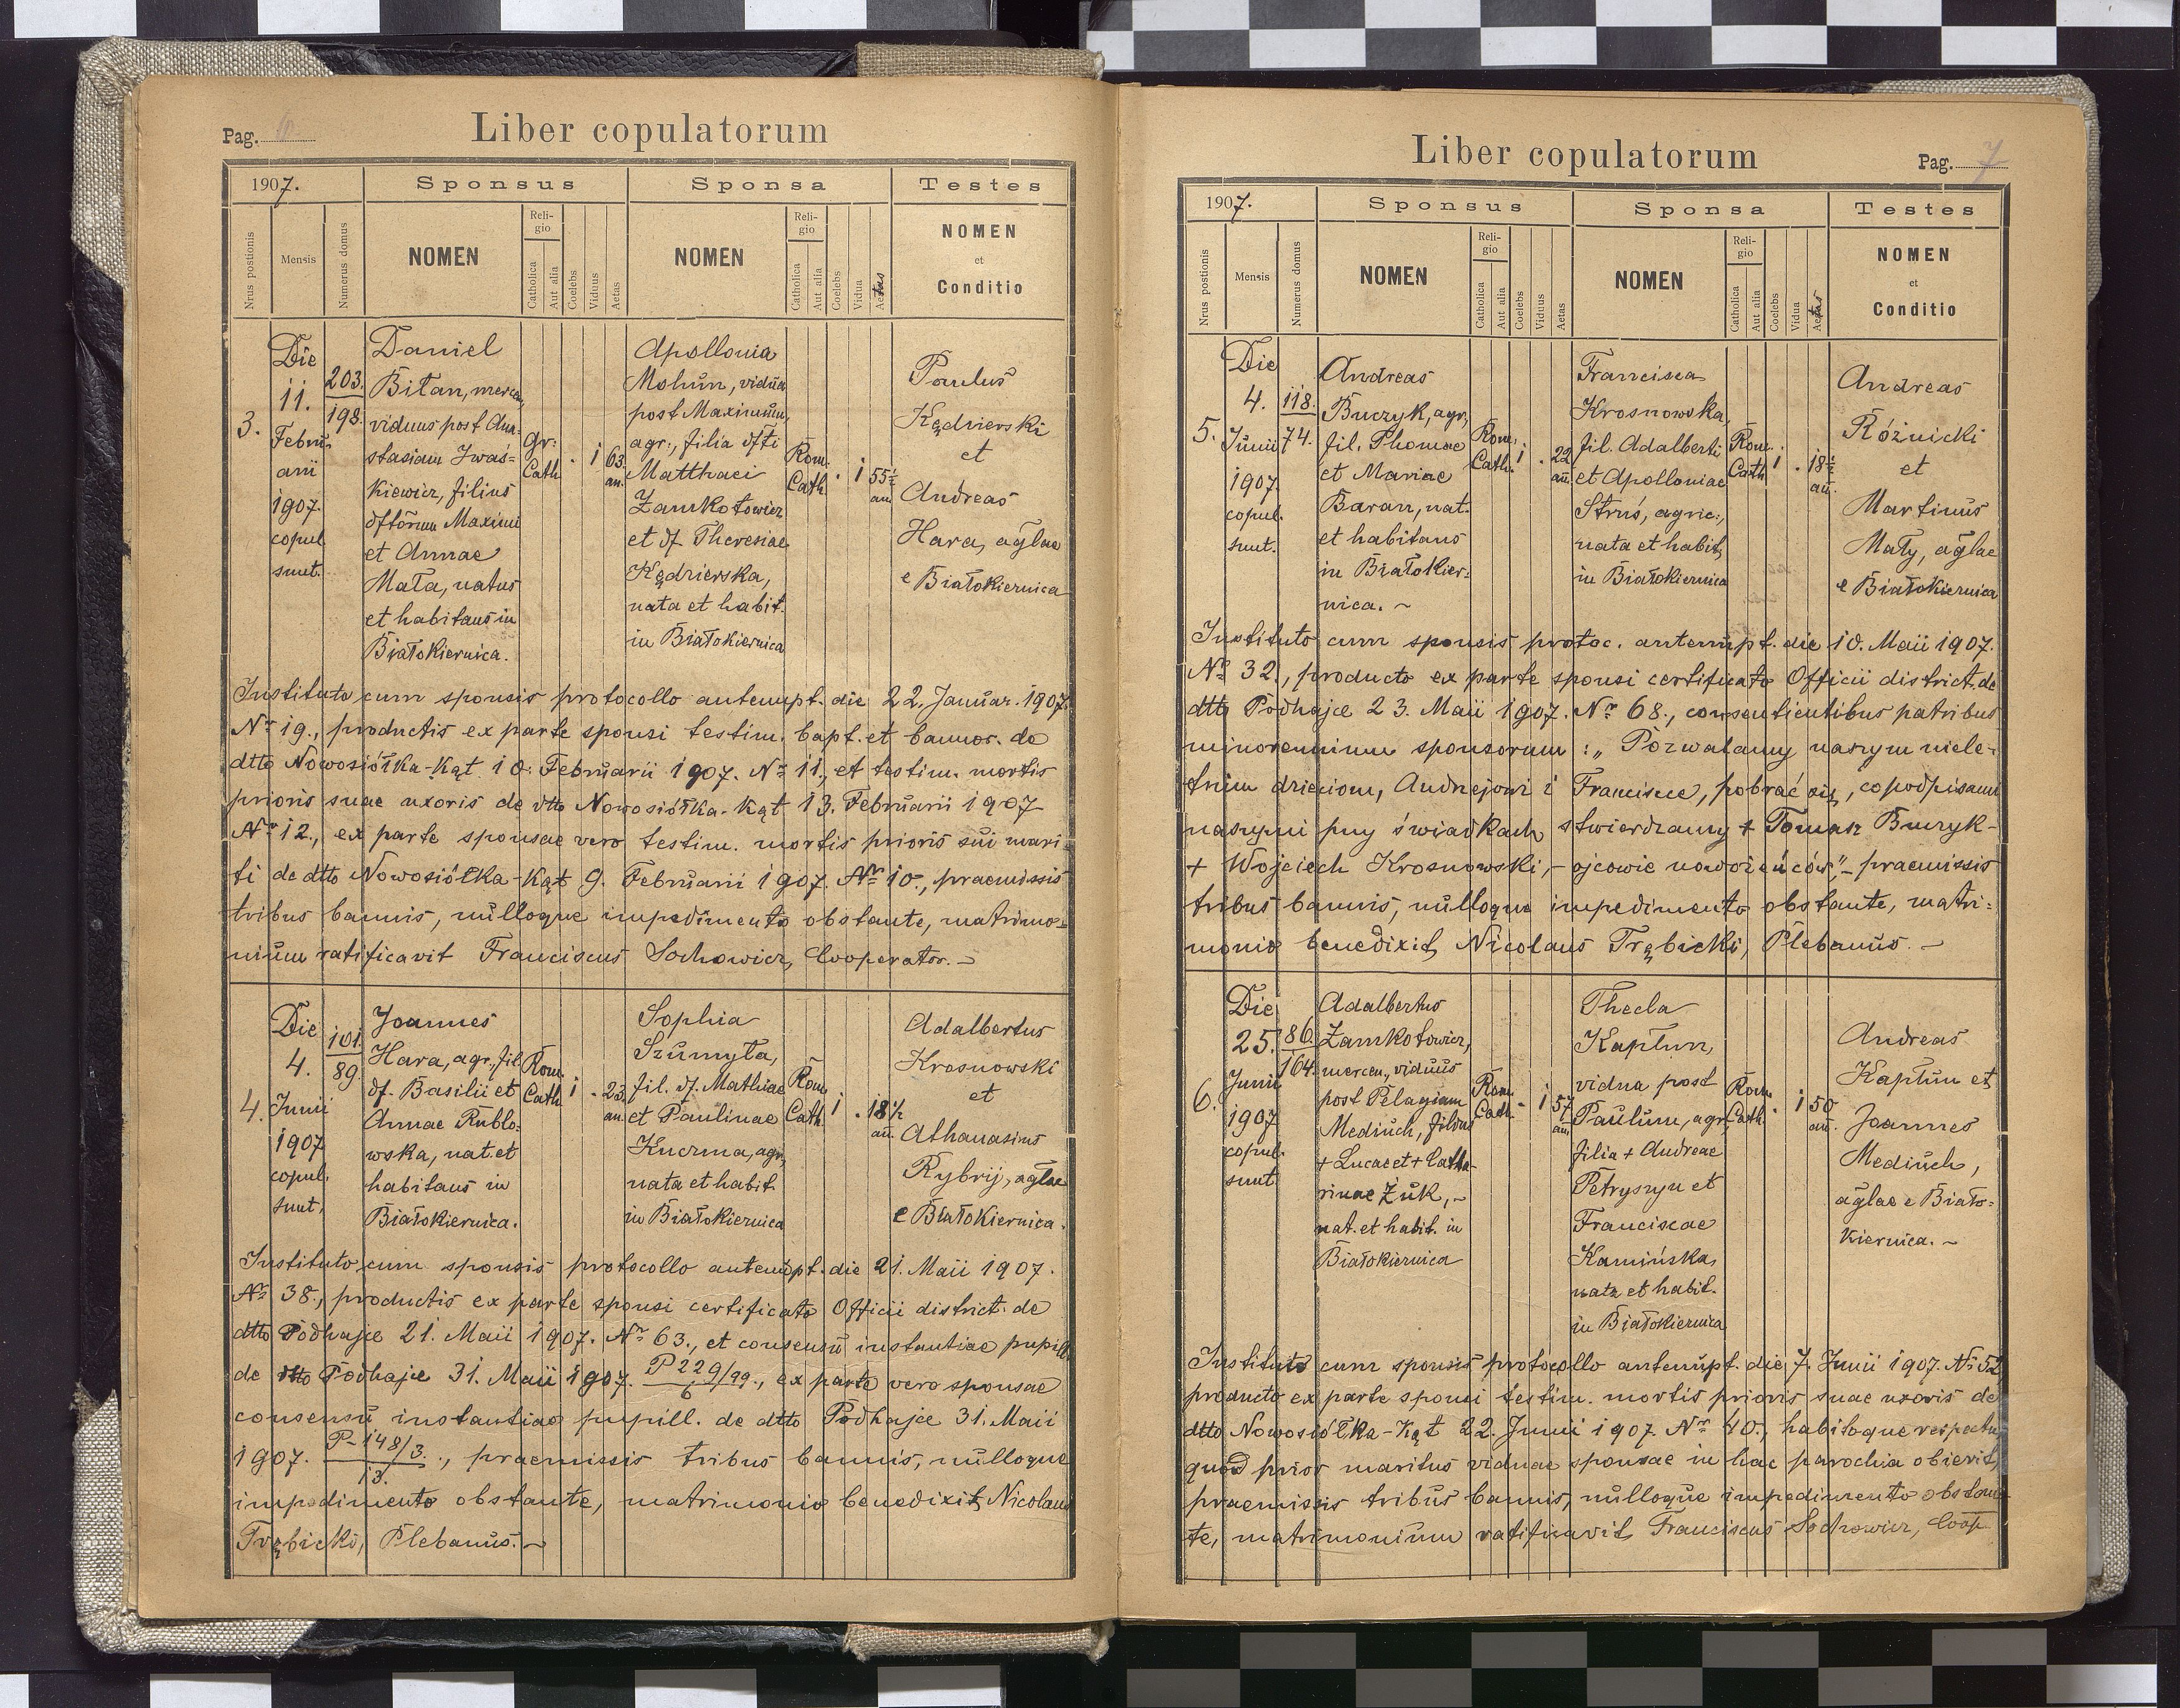 Pag. 6
Liber copulatorum
1907.
Sponsus
Sponsa
Testes
Nrus postionis
Mensis
Numerus domus
NOMEN
Religio
Catholica
Aut alia
Coelebs
Viduus
Aetas
NOMEN
Religio
Catholica
Aut alia
Coelebs
Vidua
Aetas
NOMEN
et
Conditio
3.
Die
11.
Febru-
arii
1907.
copul.
sunt.
203.
198.
Daniel
Bitan, mercen,
viduus post Ana-
stasiam Iwaś=
kiewicz, filius
dftorum Maximi
et Annae
Mała, natus
et habitans in
Białokiernica.
Gr:
Cath
1
63.
an.
Apollonia
Mohun, vidua
post Maximum,
agr., filia dfti
Matthaei
Zamkotowicz
et df. Theresiae
Kędzierska,
nata et habit.
in Białokiernica
Rom.
Cath.
1
55½
an.
Paulus
Kędzierski
et
Andreas
Hara, aglae
e Białokiernica
Instituto cum sponsis protocollo antenupt. die 22. Januar. 1907.
Nr 19., productis ex parte sponsi testim. bapt. et bannor. de
dtto Nowosiółka-Kąt 10. Februarii 1907. Nr 11., et testim. mortis
prioris suae uxoris de dtto Nowosiółka-Kąt 13. Februarii 1907
Nr 12., ex parte sponsae vero testim. mortis prioris sui mari-
ti de dtto Nowosiółka-Kąt 9. Februarii 1907. Nr 10., praemissis
tribus bannis, nulloque impedimento obstante, matrimo=
nium ratificavit Franciscus Sochowicz, Cooperator.-
4.
Die
4.
Junii
1907
copul.
sunt.
101.
89.
Joannes
Hara, agr., fil.
df. Basilii et
Annae Rublo=
wska, nat. et
habitans in
Białokiernica.
Rom.
Cath.
1
23.
an.
Sophia
Szumyta,
fil. df. Mathiae
et Paulinae
Kuczma, agr.,
nata et habit.
in Białokiernica
Rom.
Cath.
1
18½
an.
Adalbertus
Krosnowski
et
Athanasius
Rybrij, aglae
e Białokiernica.
Instituto cum sponsis protocollo antenupt. die 21. Maii 1907.
Nr 38., productis ex parte sponsi certificato Officii district. de
dtto Podhajce 21. Maii 1907. Nr 63., et consensu instantiae pupill.
de dtto Podhajce 31. Maii 1907. P229/99./6, ex parte vero sponsae
consensu instantiae pupill. de dtto Podhajce 31. Maii
1907. P-148/3./13., praemissis tribus bannis, nulloque
impedimento obstante, matrimonio benedixit Nicolaus
Trębicki, Plebanus.-
Liber copulatorum
Pag. 7
1907.
Sponsus
Sponsa
Testes
Nrus postionis
Mensis
Numerus domus
NOMEN
Religio
Catholica
Aut alia
Coelebs
Viduus
Aetas
NOMEN
Religio
Catholica
Aut alia
Coelebs
Vidua
Aetas
NOMEN
et
Conditio
5.
Die
4.
Junii
1907.
copul.
sunt.
118.
74.
Andreas
Buczyk, agr.,
fil. Thomae
et Mariae
Baran, nat.
et habitans
in Białokier=
nica.-
Rom.
Cath.
1
22
an.
Francisca
Krosnowska,
fil. Adalberti
et Apolloniae
Struś, agric.,
nata et habit.
in Białokiernica
Rom.
Cath
1
18½
an.
Andreas
Różnicki
et
Martinus
Mały, aglae
e Białokiernica
Instituto cum sponsis protoc. antenupt. die 10. Maii 1907.
Nr 32., producto ex parte sponsi certificato Officii district. de
dtto Podhajce 23. Maii 1907. Nr 68., consentientibus patribus
minorennium sponsorum: „Pozwalamy naszym niele-
tnim dzieciom, Andrzejowi i Franciszce, pobrać się, co podpisami
naszymi przy świadkach stwierdzamy + Tomasz Buczyk-
+ Wojciech Krosnowski,- ojcowie nowożeńców",- praemissis
tribus bannis, nulloque impedimento obstante, matri=
monio benedixit Nicolaus Trębicki, Plebanus.-
6.
Die
25.
Junii
1907
copul.
sunt
86.
164.
Adalbertus
Zamkotowicz,
mercen., viduus
post Pelagiam
Mediuch, filius
+ Lucae et + Catha-
rinae Żuk,-
nat. et habit. in
Białokiernica
Rom.
Cath.
1
57
an.
Thecla
Kaplun,
vidua post
Paulum, agr.,
filia + Andreae
Petryszyn et
Franciscae
Kamińska,
nata et habit.
in Białokiernica
Rom.
Cath.
1
50
an.
Andreas
Kaplun et
Joannes
Mediuch,
aglae e Biało=
kiernica.-
Instituto cum sponsis protocollo antenupt. die 7. Junii 1907. Nr 52
producto ex parte sponsi testim. mortis prioris suae uxoris de
dtto Nowosiółka-Kąt 22. Junii 1907. Nr 40., habitoque respectu,
quod prior maritus viduae sponsae in hac parochia obierit,
praemissis tribus bannis, nulloque impedimento obstan-
te, matrimonium ratificavit Franciscus Sochowicz, Coop.